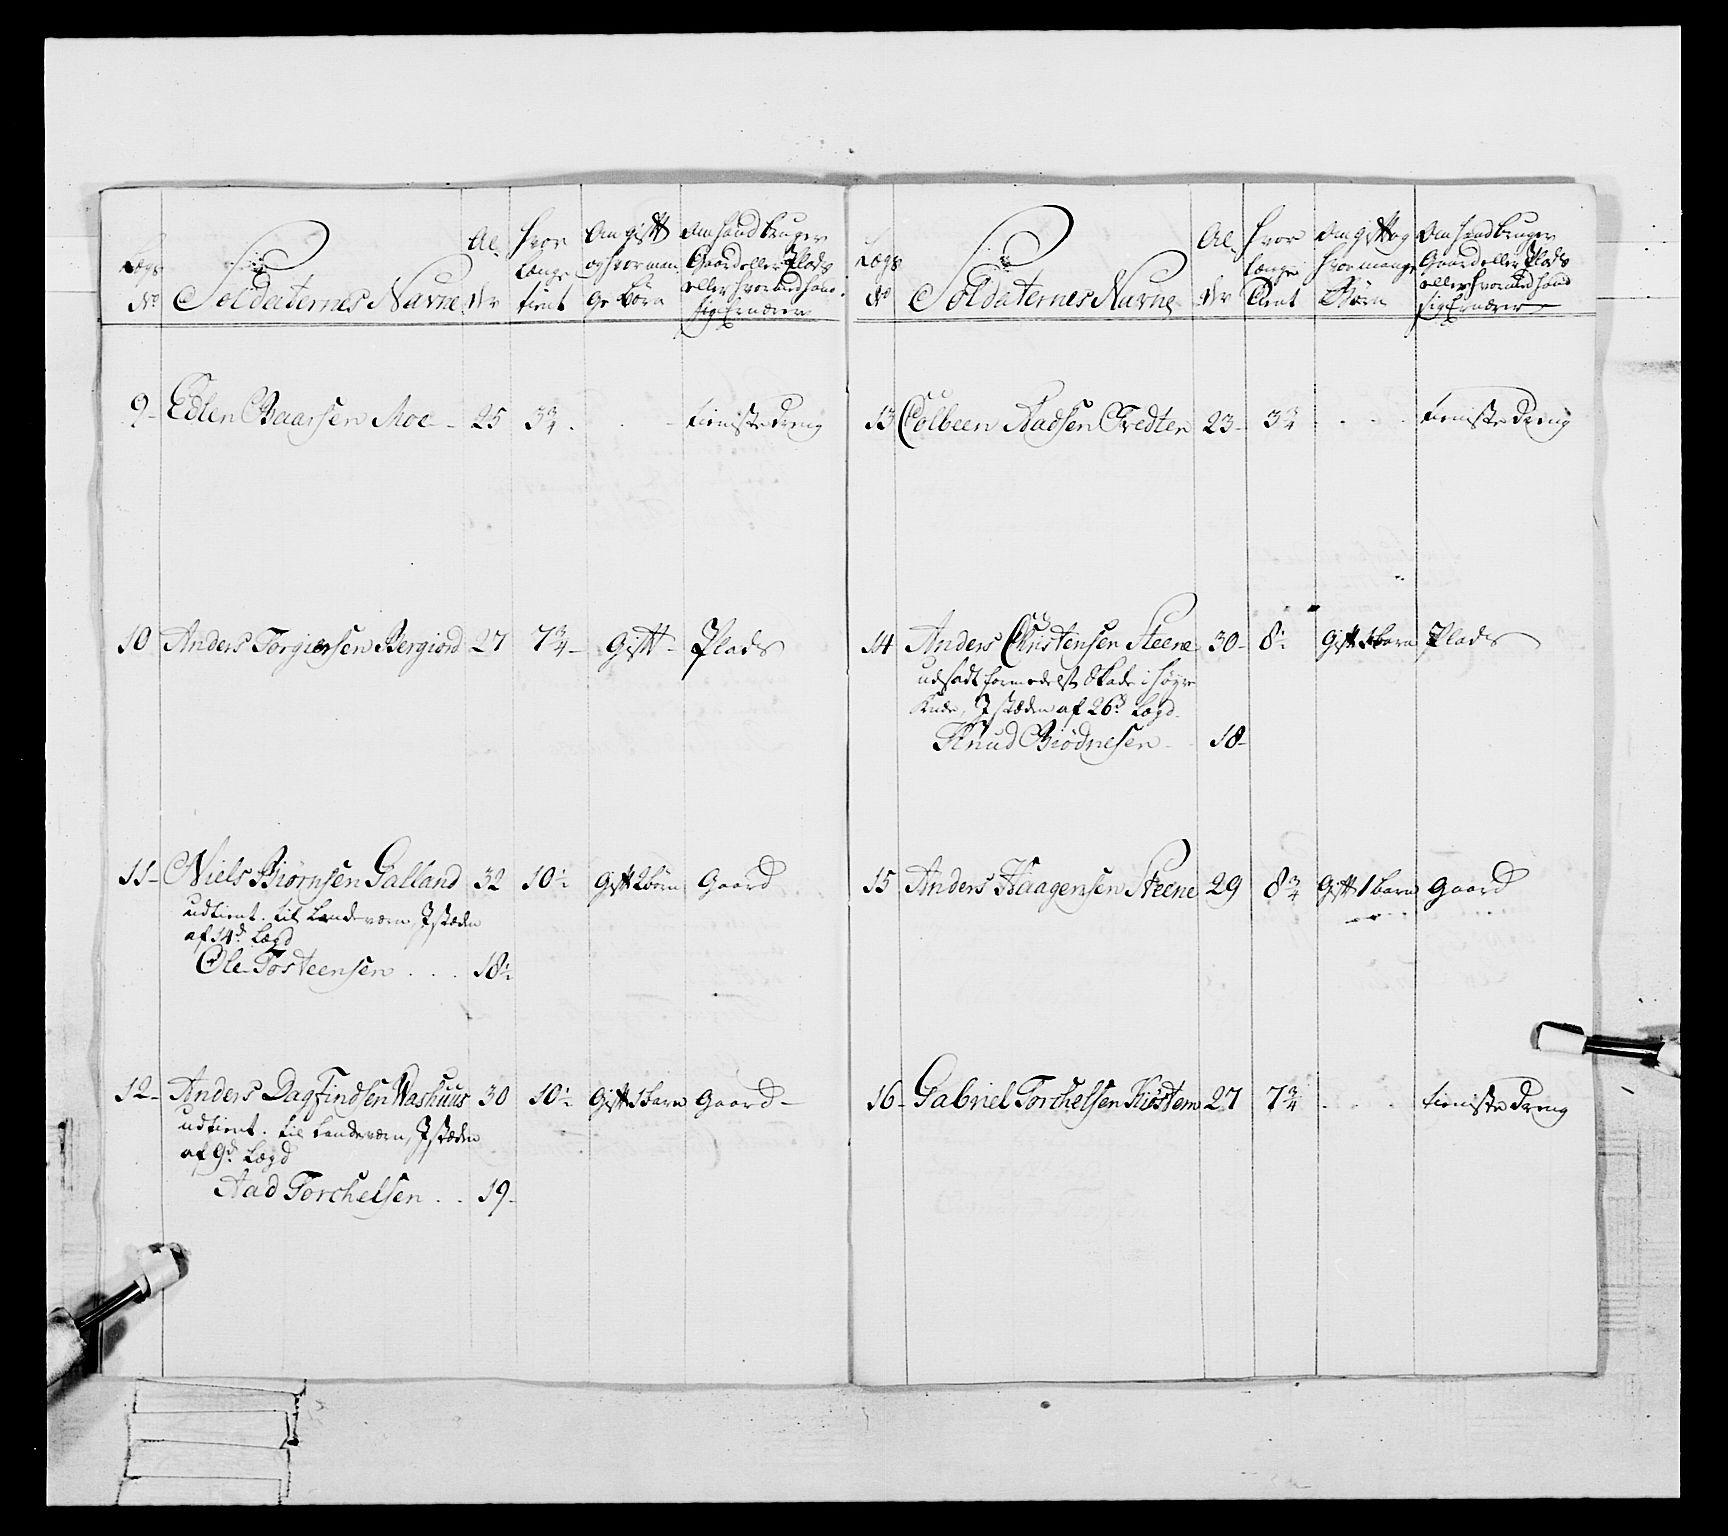 Lægs No
Soldaternes Navne
Alder
hvor længe tient
Om gift og hvor mange Børn
Om hand bruger Gaard eller Plads eller hvorved hand sig Ernærer
9 - Edlen Baarsen Moe - 25 3 3/4 . . - tieniste dreng
10 Anders Torgiersen Bergiord 27 7 3/4 - Gift - Plads
11 - Niels Biørnsen Galland 32 10 1/2 Gift 2 børn Gaard
udtient. til Landeværn, I stæden
af 14d Lægd
Ole Tosteensen . . . 18 1/2
12 - Anders Dagfindsen Washuus 30 10 1/2 Gift 1 barn Gaard -
udtient. til Landeværn, I stæden
af 9d Lægd
Aad Torchelsen . . 19 -
Lægs No
Soldaternes Navne
Alder
hvor længe tient
Om gift og hvor mange Børn
Om hand bruger Gaard eller Plads eller hvorved hand sig Ernærer
13 Colbeen Aadsen Tvedten 23 - 3 3/4 . . . tieniste dreng
14 Anders Christensen Steene 30 - 8 1/2 Gift 1 barn Plads
udsadt formedelst Skade i høyre
Knæ, I stæden af 26d Lægd
Knud Biødnesen - 18 -
15 Anders Haagensen Steene 29 8 3/4 Gift 1 barn Gaard
16 - Gabriel Torchelsen Kiøstem 27 7 3/4 . . . tieniste dreng